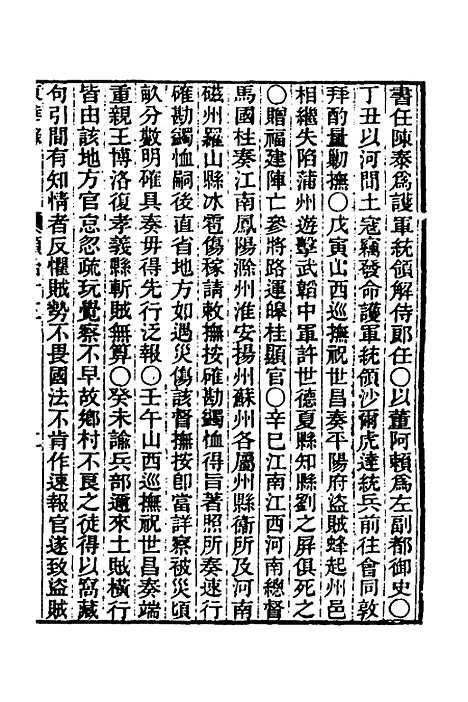 書任陳泰爲護軍統領解侍郎任〇以董阿賴爲左副都御史〇
丁丑以河間土寇竊發命護軍統領沙爾虎達統兵前往會同敦
拜酌量勦撫〇戊寅山西巡撫祝世昌奏平陽府盜賊蜂起州邑
相繼失陷蒲州遊擊武韜中軍許世德夏縣知縣劉之屏俱死之
〇贈福建陣亡參將路運皞桂顯官〇辛巳江南江西河南總督
馬國柱奏江南鳳陽滁州淮安揚州蘇州各屬州縣衞所及河南
磁州羅山縣冰雹傷稼請敕撫按確勘蠲恤得旨著照所奏速行
確勘蠲恤嗣後直省地方如遇災傷該督撫按卽當詳察被災頃
畝分數明確具奏毋得先行泛報〇壬午山西巡撫祝世昌奏端
重親王博洛復孝義縣斬賊無算〇癸未諭兵部邇來土賊橫行
皆由該地方官忘忽疏玩覺察不早故鄉村不良之徒得以窩藏
句引間有知情者反懼賊勢不畏國法不肯作速報官遂致盜賊